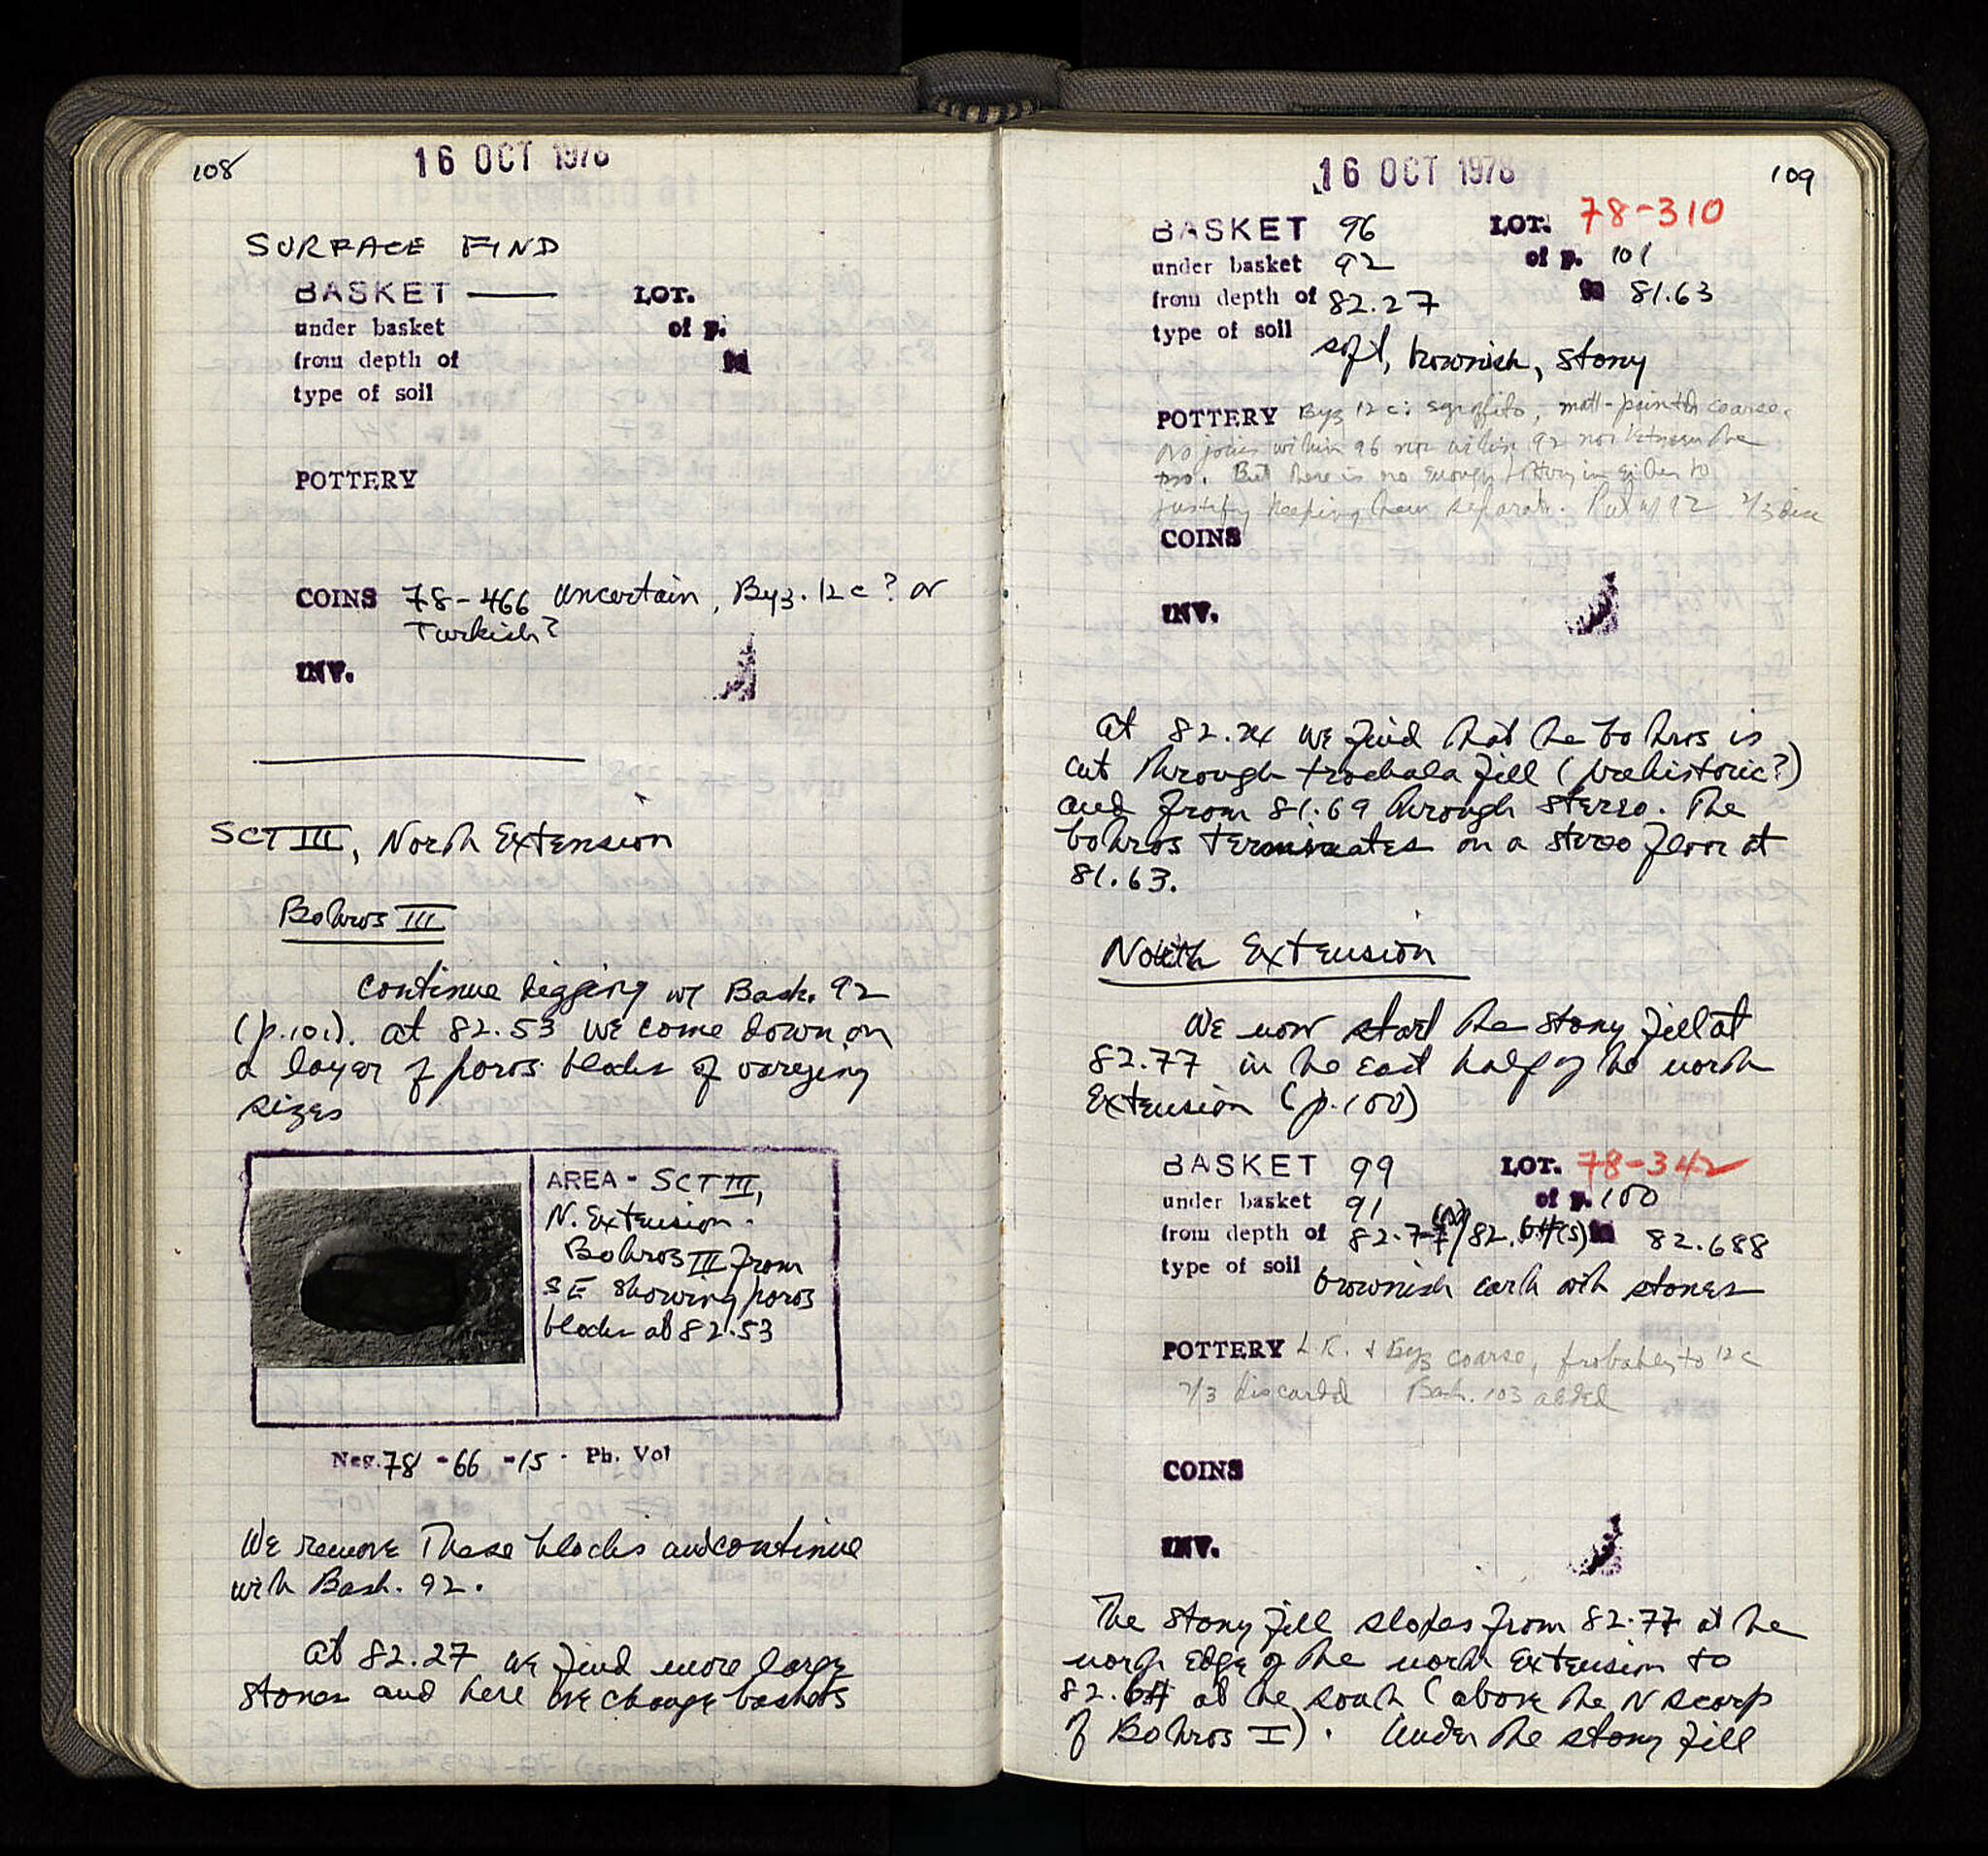 108
16 OCT 1978
SURFACE FIND
BASKET —— LOT.
under basket of p.
from depth of to
type of soil
POTTERY
COINS 78-466 uncertain, Byz. 12 c? or
Turkish?
INV.
SCT III, North Extension
Bothros III
continue digging w/ Bask. 92
(p.101). at 82.53 we come down on
a layer of poros blocks of varying
sizes
AREA - SCT III,
N. Extension.
Bothros III from
SE showing poros
blocks at 82.53
Neg. 78-66-15. Ph. Vol
We remove these blocks and continue
with Bask. 92.
at 82.27 we find more large
stones and here we change baskets
16 OCT 1978
109
BASKET 96 LOT. 78-310
under basket 92 of p. 101
from depth of 82.27 to 81.63
type of soil soft, brownish, stony
POTTERY Byz 12 c: sgraffito, matt-painted coarse.
No joins within 96 nor within 92 nor between the
two. But there is no enough pottery in either to
justify keeping them separate. Put w/ 92 2/3 disc
COINS
INV.
at 82.24 we find that the bothros is
cut through trochala fill (prehistoric?)
and from 81.69 through stereo. The
bothros terminates on a stereo floor at
81.63.
North Extension
We now start the stony fill at
82.77 in the east half of the north
Extension (p.100)
BASKET 99 LOT. 78-342
under basket 91 of p. 100
from depth of 82.77(N)/82.64(S) to 82.688
type of soil brownish earth with stones
POTTERY L.R. & Byz coarse, probably to 12 c
2/3 discarded Bask. 103 added
COINS
INV.
The stony fill slopes from 82.77 at the
north edge of the north extension to
82.64 at the south (above the N scarp
of Bothros I). Under the stony fill